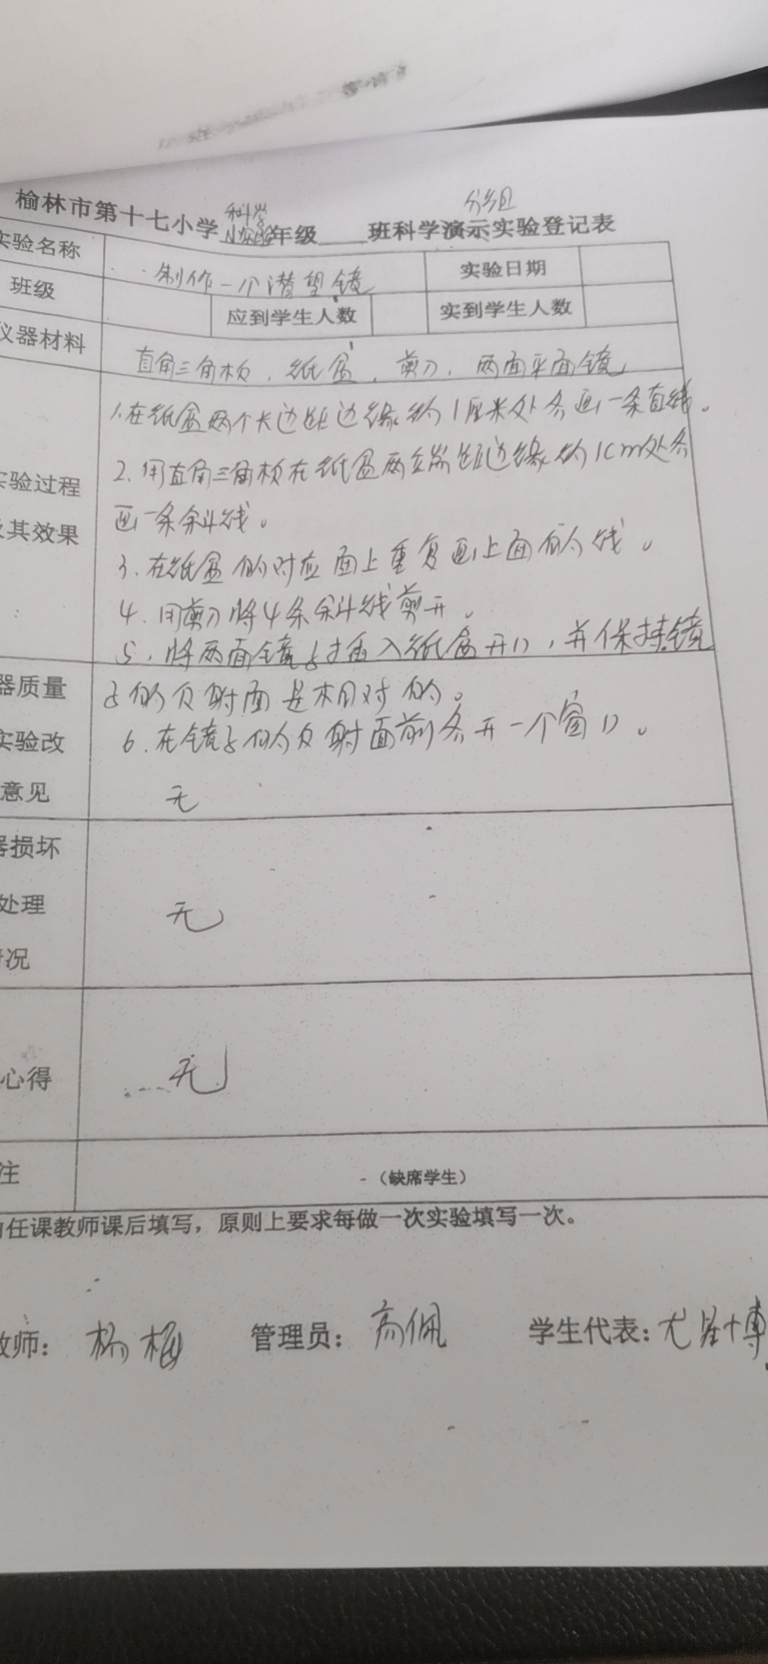 榆林市第十七小学 科学 年级 班科学演示实验登记表
分组
实验名称 制作一个潜望镜 实验日期
班级 应到学生人数 实到学生人数
仪器材料 直角三角板、纸盒、剪刀、两面平面镜
1.在纸盒两个长边距边缘约1厘米处各画一条直线。
2.用直角三角板在纸盒两端距边缘约1cm处各
实验过程
画一条斜线。
及其效果
3.在纸盒的对应面上重复画上面的线。
4.用剪刀将4条斜线剪开。
5.将两面镜子插入纸盒开口,并保持镜
器质量 子的反射面是相对的。
实验改 6.在镜子的反射面前各开一个窗口。
意见 无
器损坏
处理 无
情况
心得 无
注 (缺席学生)
任课教师课后填写,原则上要求每做一次实验填写一次。
教师: 杨梅 管理员: 高佩 学生代表: